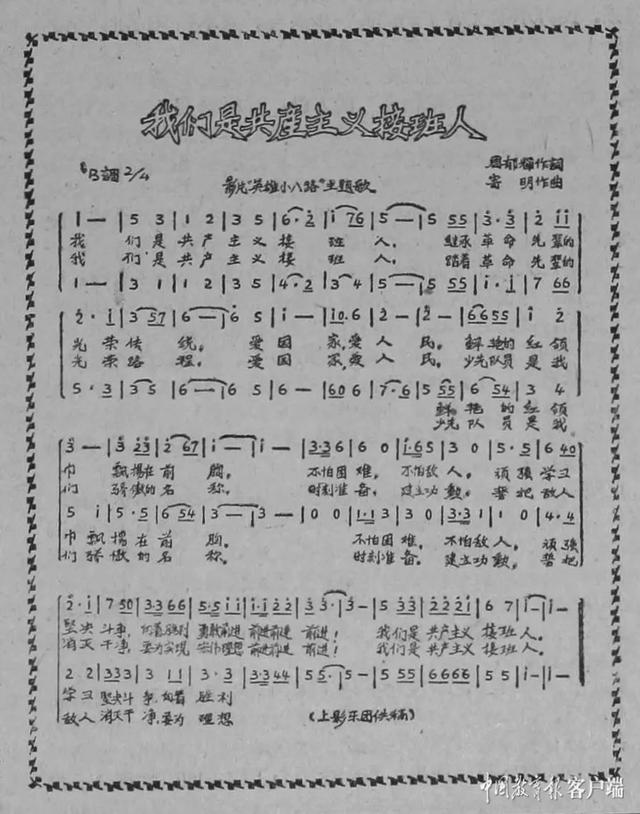 我们是共產主义接班人
♭B調 2/4
影片"英雄小八路"主題歌
周郁輝作詞
寄 明作曲
1 — | 5 3 | 1 2 | 3 5 | 6· 2 | i 76 | 5 — | 5 — | 5 55 | 5 3 | 2 ii
我 们是 共产 主义 接 班 人， 継承 革命 先輩的
我 们是 共产 主义 接 班 人， 踏着 革命 先輩的
1 — | 3 1 | 1 2 | 3 5 | 4· 2 | 3 4 | 5 — | 5 — | 5 55 | i· i | 7 66
2· i | 3 57 | 6 — | 6 5 | i — | i0· 6 | 2 — | 2 — | 6655 | i 2
光荣传 统， 爱国 家，爱人 民， 鲜艳的 红领
光荣路 程， 爱国 家，爱人 民， 少先队员 是我
5· 3 | 35 | 6 — | 6 5 | 6 — | 60 6 | 7· 6 | 5 55 | 6 54 | 3 4
鲜艳 的 红领
少先 队员 是我
3 — | 3 23 | 2 67 | i — | i — | 3·36 | 6 0 | i·65 | 3 0 | 5· 5 | 6 40
巾 飘揚在前 胸， 不怕困 难， 不怕敌 人， 顽强学习
们 骄傲的名 称， 时刻准 备， 建立功 勳， 誓把敌人
5 i | 5· 5 | 6 54 | 3 — | 3 — | 0 0 | 1·13 | 3 0 | 3·31 | 1 0 | 4· 4
巾 飘揚在前 胸， 不怕困 难， 不怕敌 人， 顽强
们 骄傲的名 称， 时刻准 备， 建立功 勳， 誓把
2· i | 7 50 | 33 66 | 5·5 ii | i·i22 | 3· 3 | 3 — | 5 33 | 2221 | 6 7 | i — | i —
坚决 斗争， 向着胜利 勇敢前进 前进前进 前进！ 我们是 共产主义 接班人。
消灭 干净， 要为实现 宏伟理想 前进前进 前进！ 我们是 共产主义 接班人。
2 2 | 333 | 3 11 | 3· 3 | 3·344 | 5 5· | 5 — | 5 55 | 6666 | 5 5 | i — | i —
学习 坚决斗 争，向着 胜利
敌人 消灭干 净，要为 理想
（上影乐团供稿）
中国教育报客户端